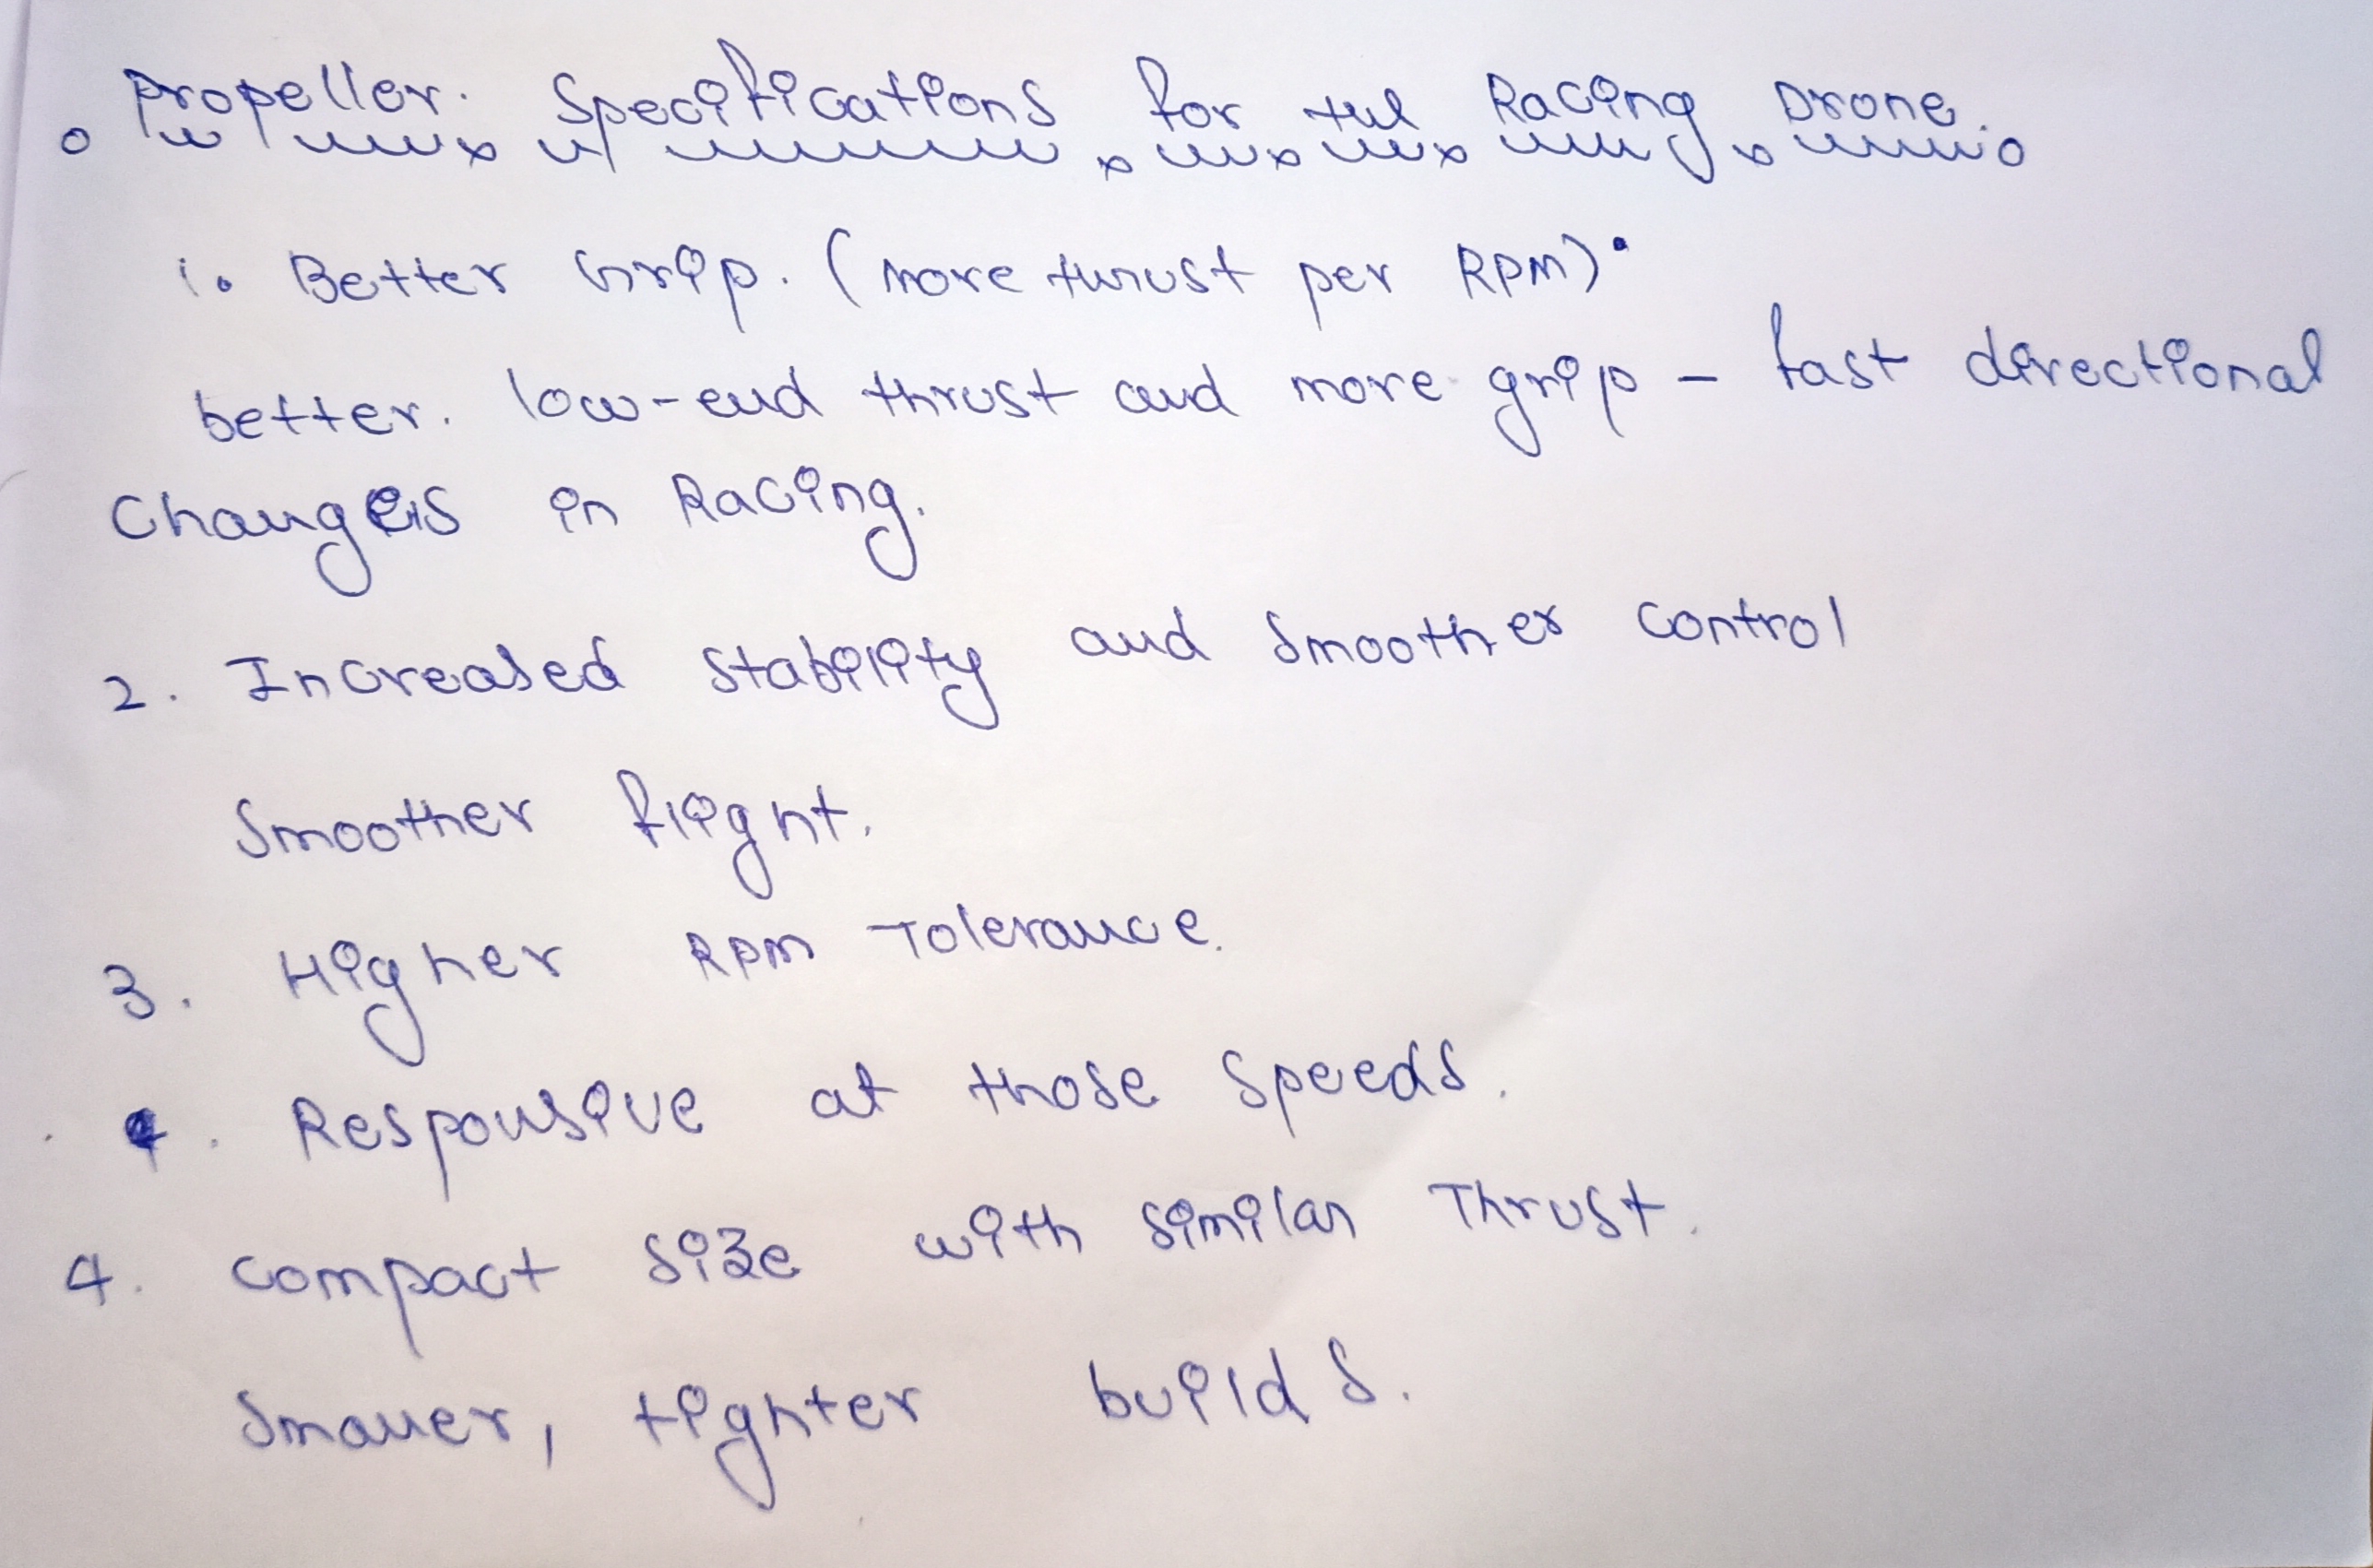 Propeller. Specifications for the Racing Drone.
1. Better Grip. (more thrust per RPM).
better. low-end thrust and more grip - fast directional
Changes in Racing.
2. Increased Stability and Smoother Control
Smoother flight.
3. Higher RPM Tolerance.
. Responsive at those Speeds.
4. Compact Size with Similar Thrust.
Smaller, tighter builds.